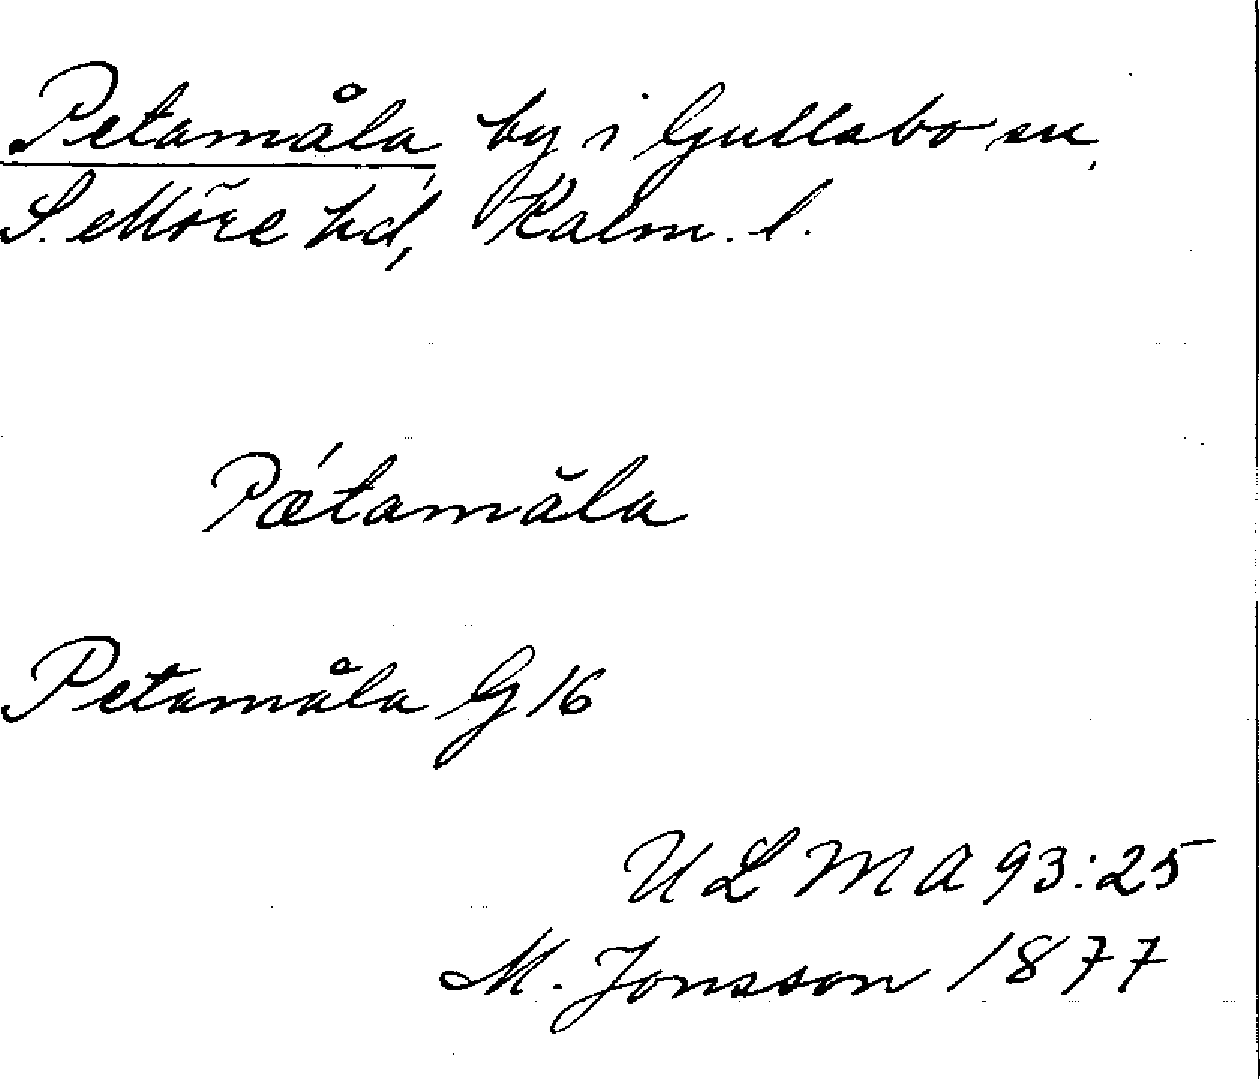 Petamåla, by i Gullabo sn,
S. Möre hd, Kalm. l.
Pǽtamăla
Petamåla G 16
ULMA 93:25
M. Jonsson 1877